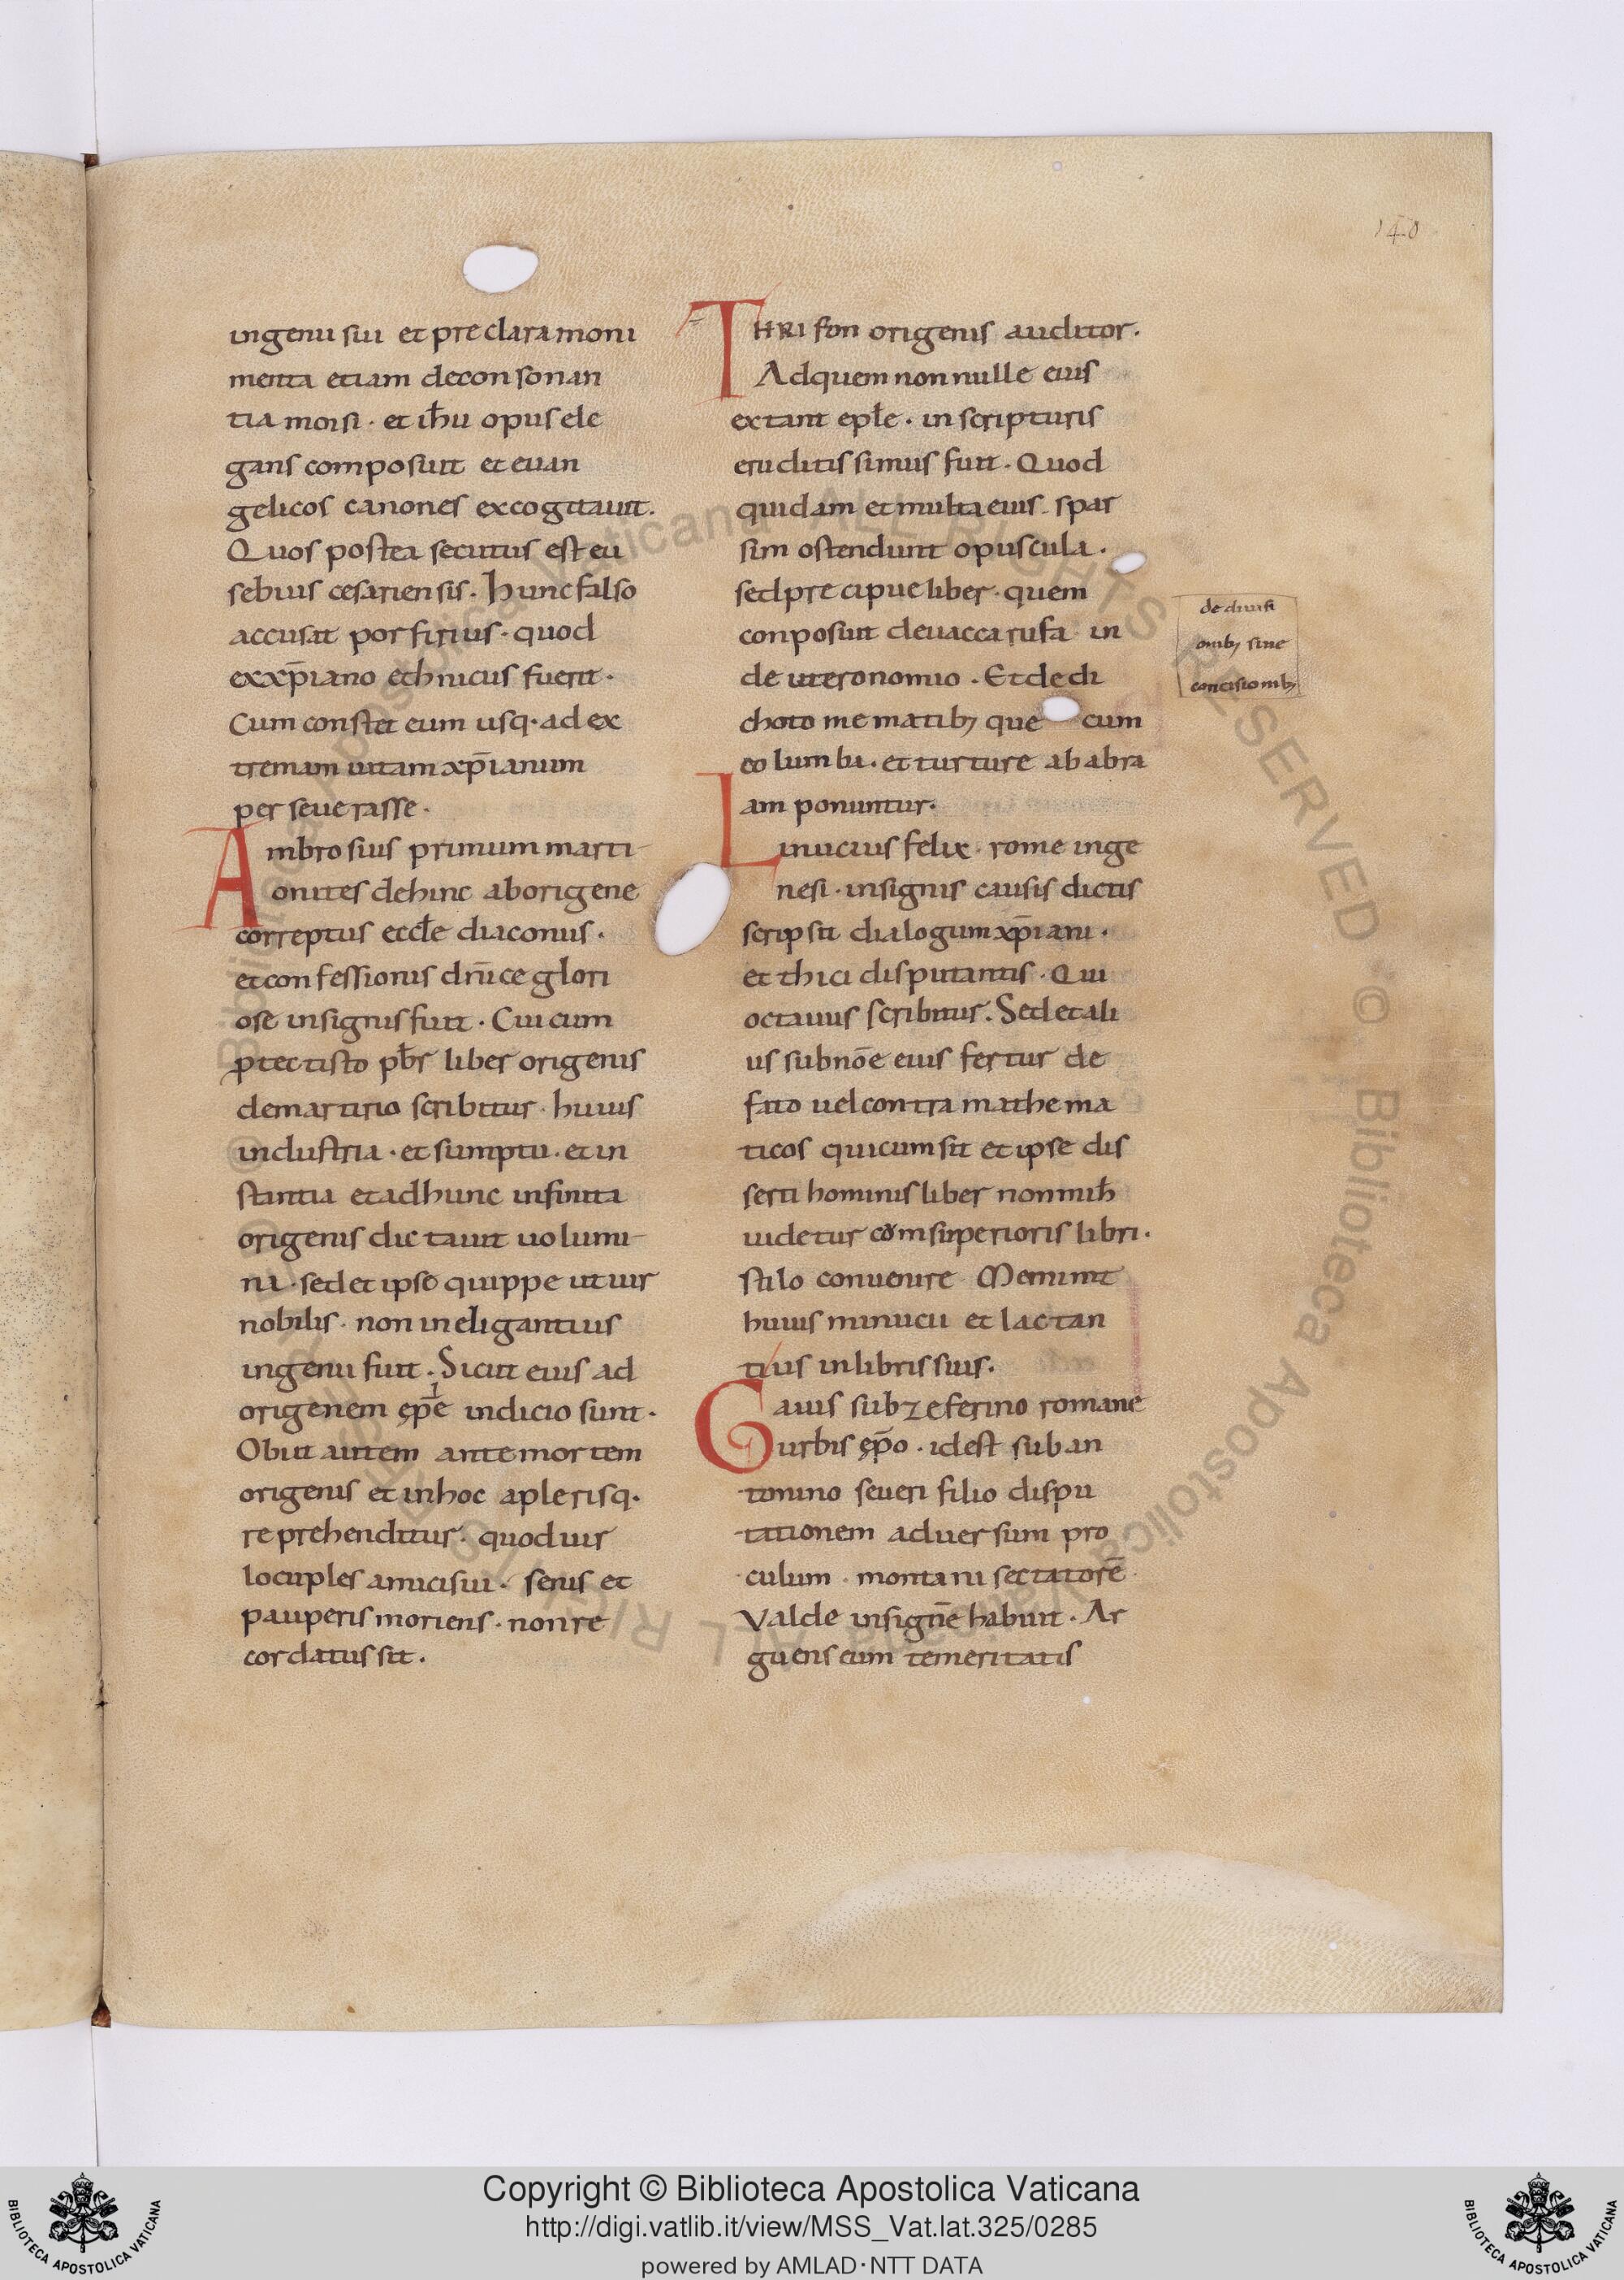 140
ingenii sui et pre clara moni
menta etiam de con sonan
tia moisi · et ih̅u opus ele
gans composuit et euan
gelicos canones excogitauit.
Quos postea secutus est eu
sebius cesariensis. Hunc falso
accusat porfirius · quod
ex xp̅iano ethnicus fuerit ·
Cum constet eum usq· ad ex
tremam uitam xp̅ianum
per seue rasse ·
Ambrosius primum marti
onites dehinc ab origene
correptus eccl̅e diaconus ·
et con fessionis dn̅ice glori
ose insignis fuit · Cui cum
ptectisto pb̅r liber origenis
de martirio scribitur · huius
industria · et sumptu · et in
stantia et ad hunc infinita
origenis dic tauit uolumi
na · sed et ipse quippe ut uir
nobilis · non in eligantius
ingenii fuit · Sicut eius ad
origenem ep̅e indicio sunt ·
Obiit autem ante mor tem
origenis et in hoc a plerisq·
re prehenditur · quod uir
locuples amici sui · senis et
pauperis moriens · non re
cordatus sit ·
THRI fon origenis auditor ·
Ad quem non nulle eius
extant epl̅e · in scripturis
eruditissimus fuit · Quod
quidam et multa eius spar
sim ostendunt opuscula ·
sed pre cipue liber · quem
conposuit de uacca rufa in
de uteronomio · Et de di
choto me matib; que cum
columba · et turture ab abra
am ponuntur ·
de diuisi
onib; siue
concisionib;
Linucius felix · rome inge
nesi · insignis causis dictis
scrip sit dialogum xp̅iani ·
et thici disputantis · Qui
octauus scribitur. Sed et ali
us sub no̅e eius fertur de
fato uel contra mathe ma
ticos qui cum sit et ipse dis
serti hominis liber non mih̅
uidetur com superioris libri ·
stilo conuenire Meminit
huius minucii et lactan
tius in libris suis ·
Gaius sub zeferino romane
urbis ep̅o · id est sub an
tonino seueri filio dispu
tationem aduersum pro
culum · montani sectatore̅
Valde insigne̅ habuit · Ar
guens eum temeritatis
Copyright © Biblioteca Apostolica Vaticana
http://digi.vatlib.it/view/MSS_Vat.lat.325/0285
powered by AMLAD·NTT DATA
BIBLIOTECA APOSTOLICA VATICANA
BIBLIOTECA APOSTOLICA VATICANA